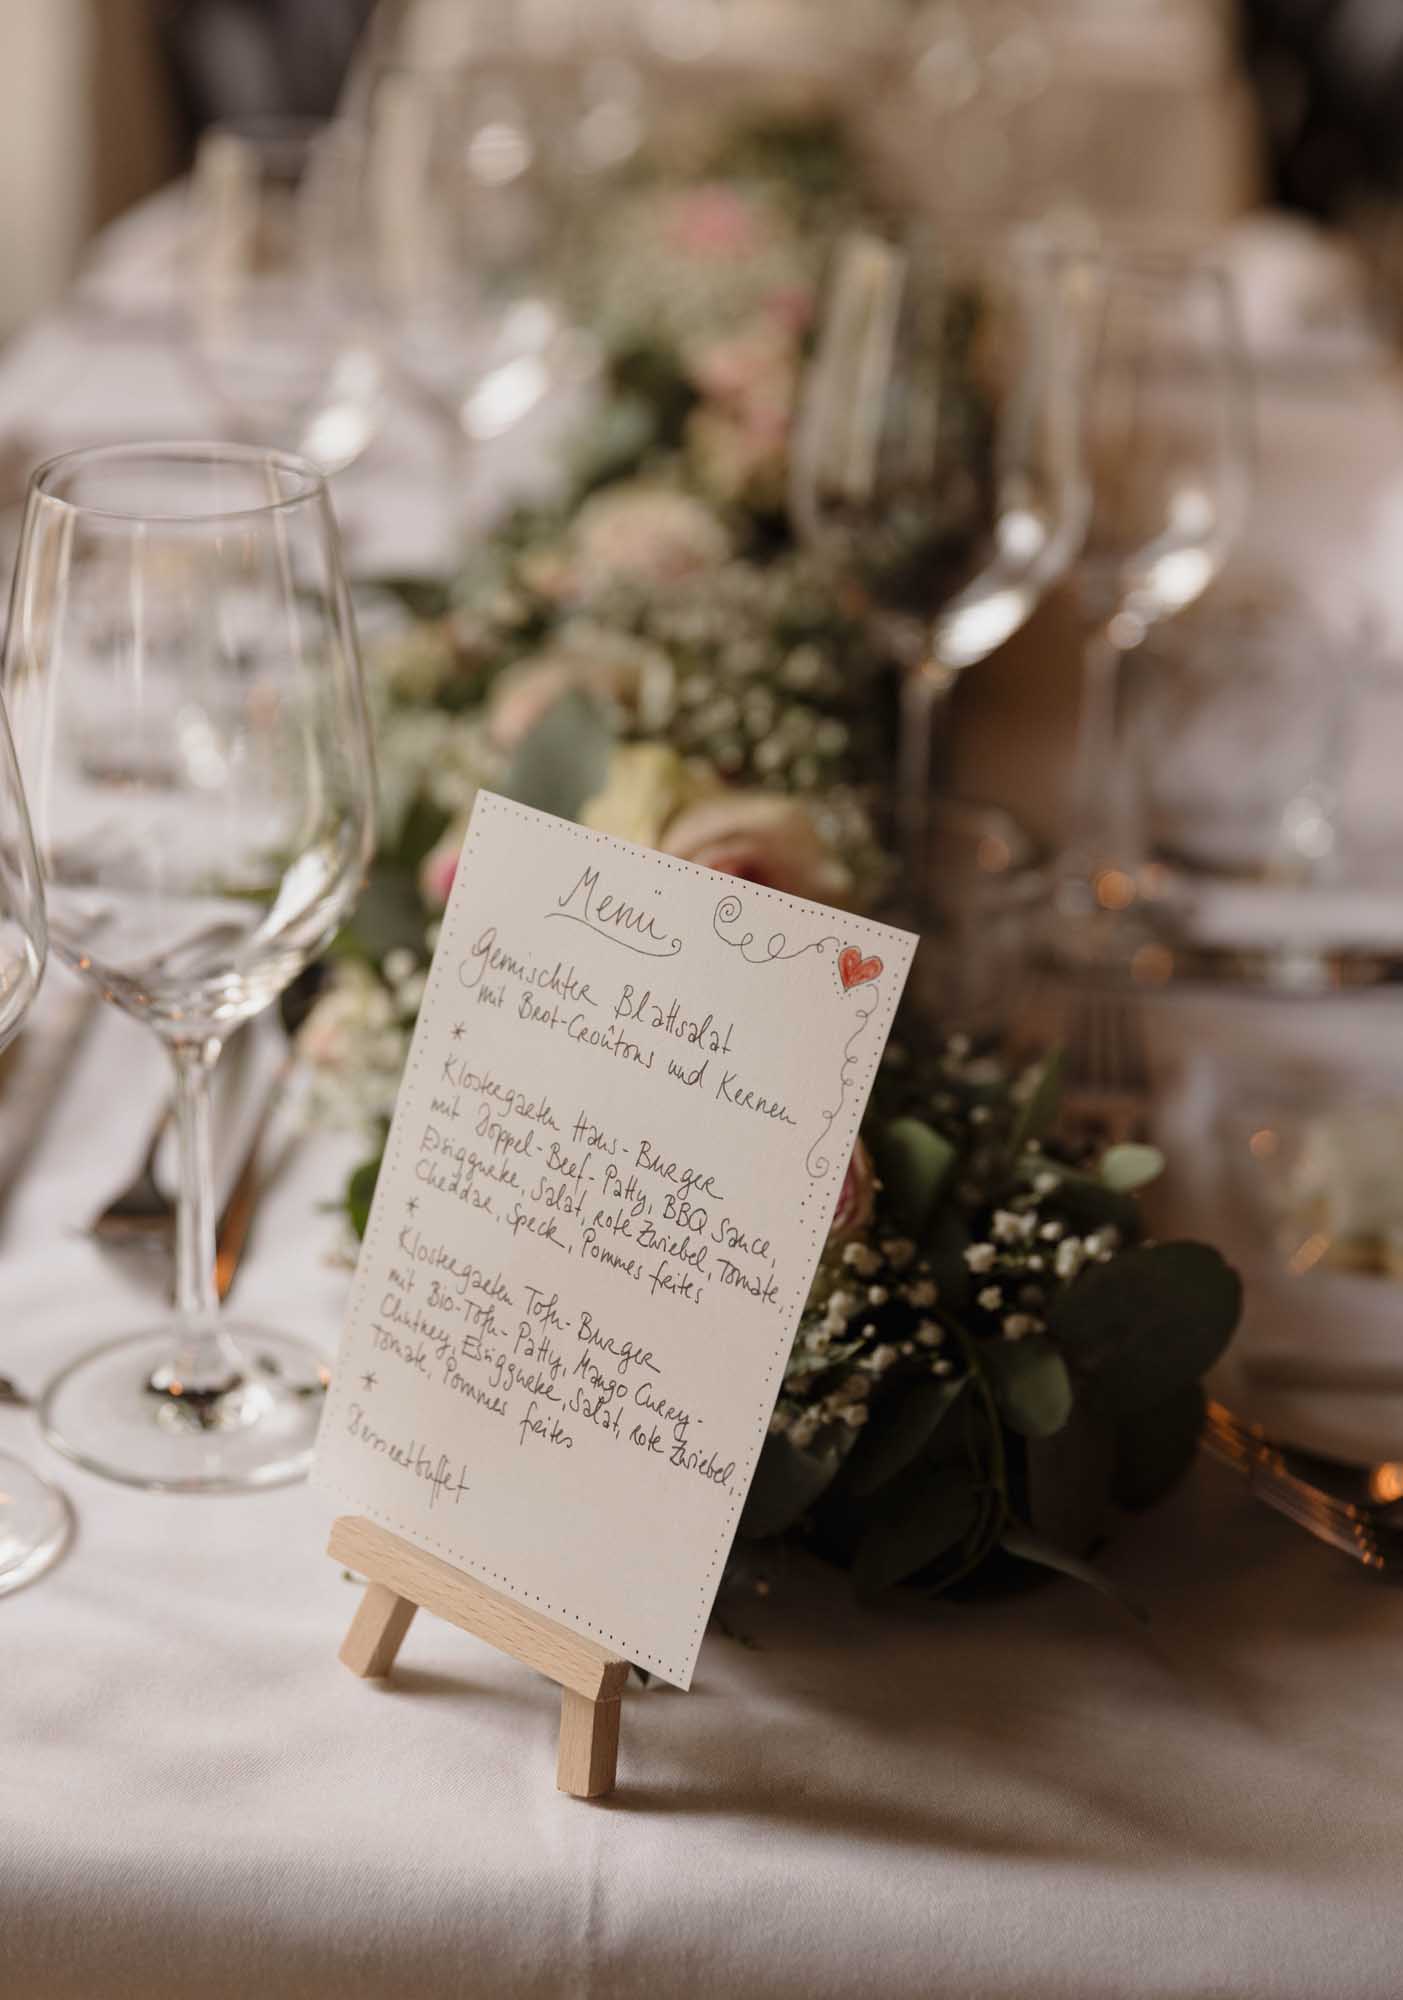 Menü
Gemischter Blattsalat
mit Brot-Croûtons und Kernen
*
Klostergarten Haus-Burger
mit Doppel-Beef-Patty, BBQ Sauce,
Essiggurke, Salat, rote Zwiebel, Tomate,
Cheddar, Speck, Pommes frites
*
Klostergarten Tofu-Burger
mit Bio-Tofu-Patty, Mango Curry-
Chutney, Essiggurke, Salat, rote Zwiebel,
Tomate, Pommes frites
*
Dessertbuffet